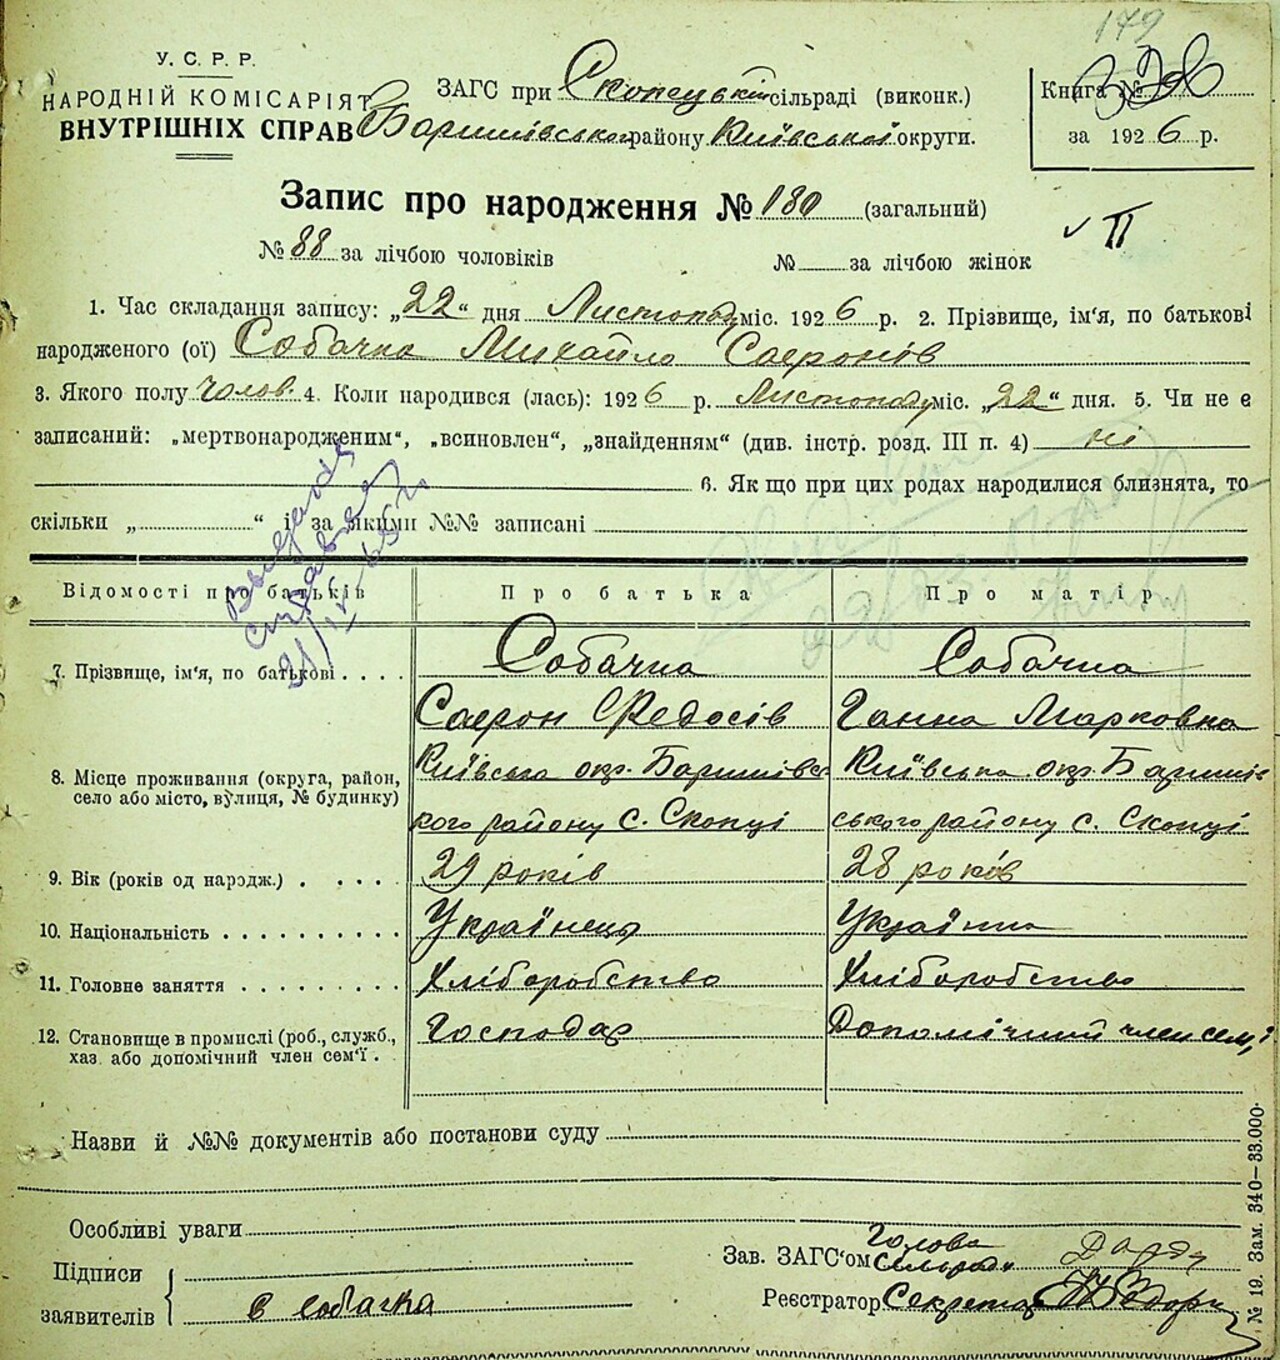 179
У. С. Р. Р.
НАРОДНІЙ КОМІСАРІЯТ
ВНУТРІШНІХ СПРАВ
ЗАГС при Скопецькій сільраді (виконк.)
Баришівського району Київської округи.
Книга №
за 1926 р.
Запис про народження № 180 (загальний)
II
№ 88 за лічбою чоловіків № за лічбою жінок
1. Час складання запису: „22“ дня Листопаду міс. 1926 р. 2. Прізвище, ім'я, по батькові
народженого (ої) Собачка Михайло Сафронів
3. Якого полу чолов. 4. Коли народився (лась): 1926 р. Листопаду міс. „22“ дня. 5. Чи не є
записаний: „мертвонародженим“, „всиновлен“, „знайденням“ (див. інстр. розд. III п. 4) ні
6. Як що при цих родах народилися близнята, то
скільки „ “ і за якими №№ записані
Відомості про батьків Про батька Про матір
7. Прізвище, ім'я, по батькові Собачка Собачка
Сафрон Федосів Ганна Марковна
8. Місце проживання (округа, район, Київська окр. Баришівсь Київська окр. Баришів
село або місто, вулиця, № будинку) кого району с. Скопці ського району с. Скопці
9. Вік (років од народж.) 29 років 28 років
10. Національність Українець Українка
11. Головне заняття Хліборобство Хліборобство
12. Становище в промислі (роб., служб., Господар Допомічний член сем'ї
хаз. або допомічний член сем'ї.
Назви й №№ документів або постанови суду
Особливі уваги
Підписи
заявителів С Собачка
Зав. ЗАГС'ом Голова
Сельради
Реєстратор Секретар
№ 19. Зам. 340—33.000.